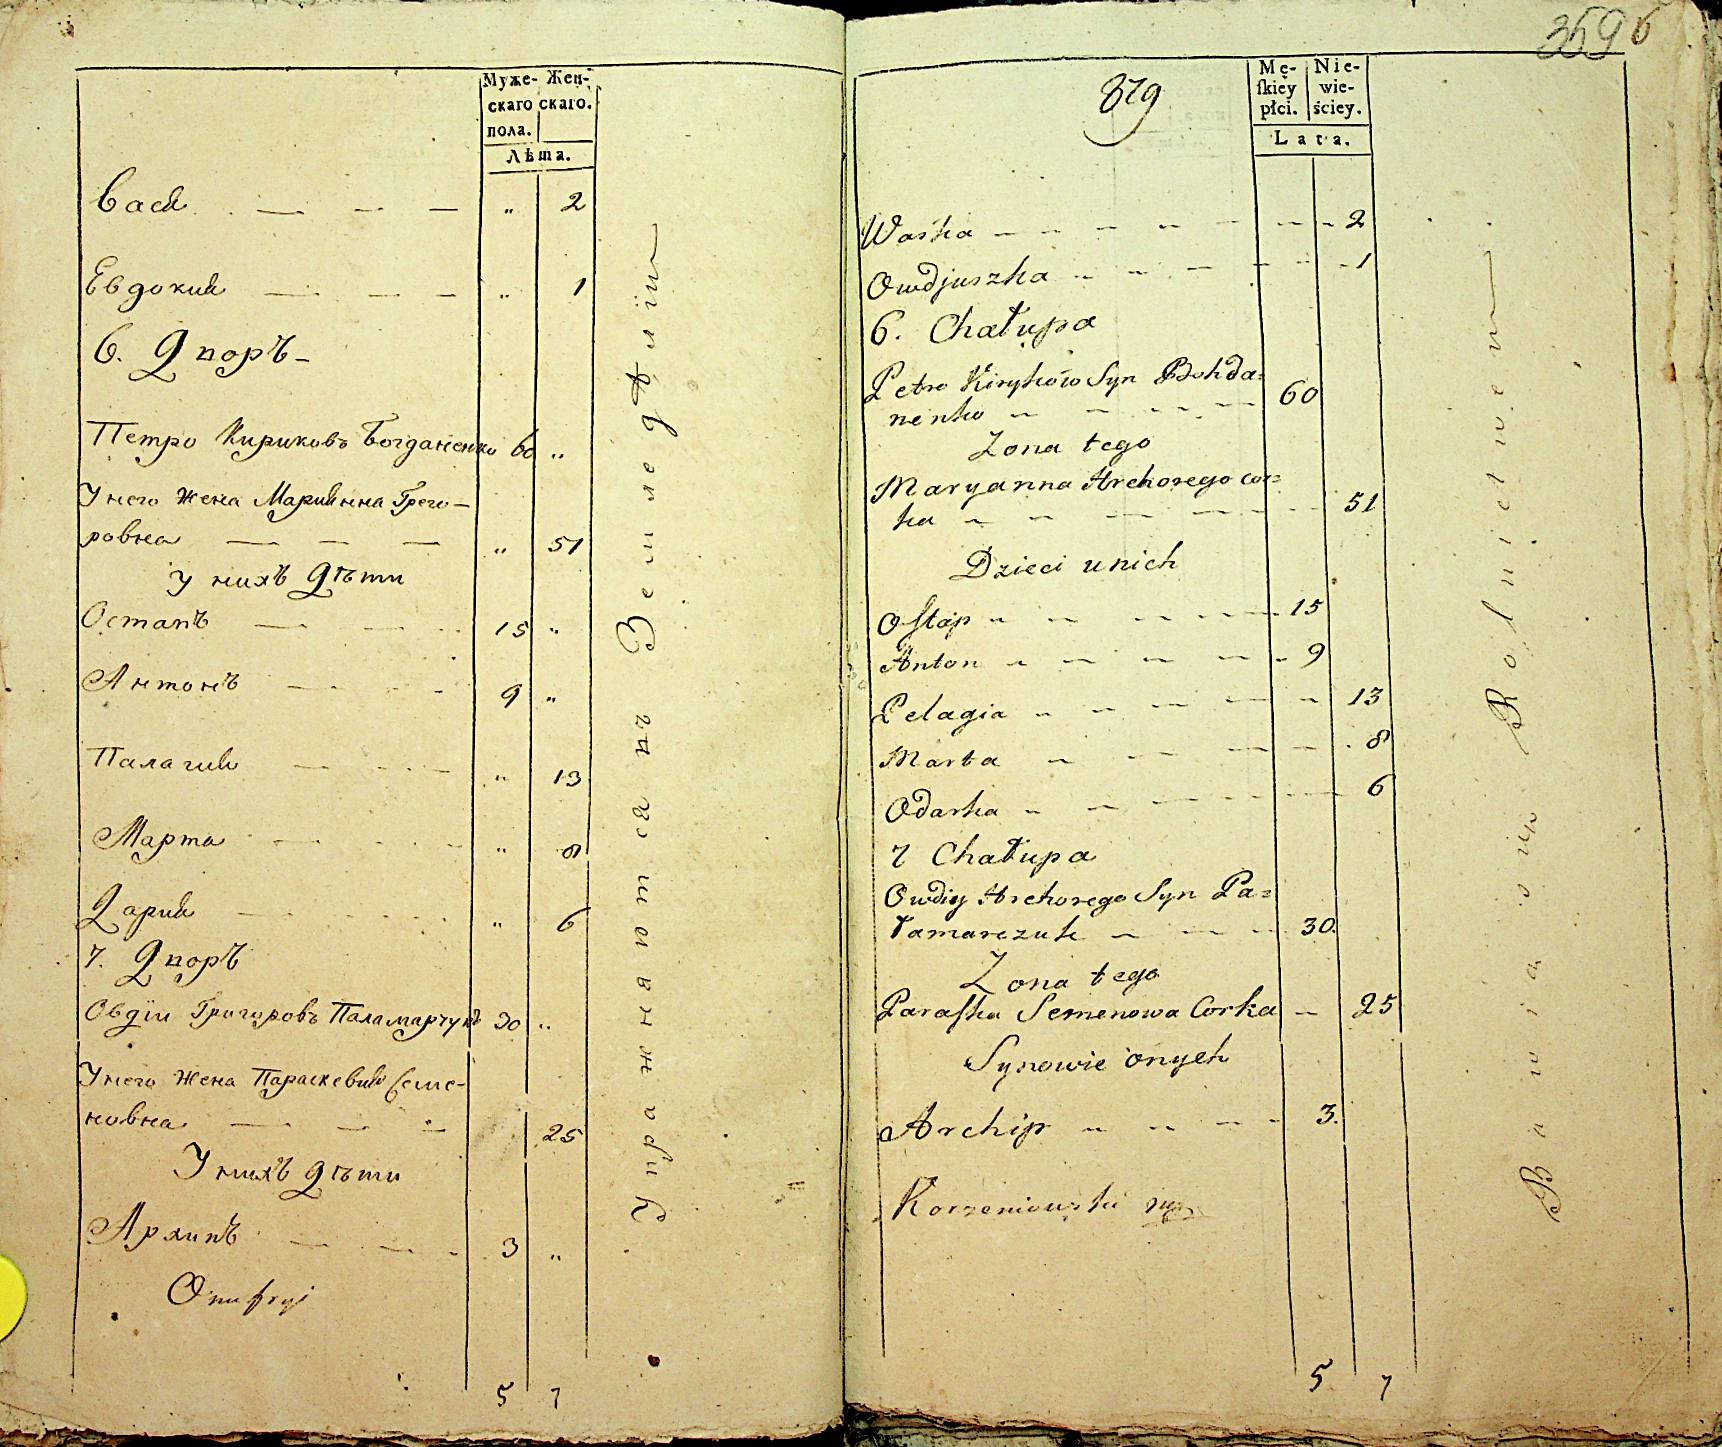 Муже- Жен-
скаго скаго.
пола.
Лѣта.
Вася — — — „ 2
Евдокия — — — „ 1
6. Дворъ -
Петро Кириковъ Богданенко 60 „
У него жена Марианна Григо-
ровна — — — „ 51
У нихъ дѣти
Остапъ — — 15 „
Антонъ — — 9 „
Палагия — — „ 13
Марта — — „ 8
Дария — — „ 6
7. Дворъ
Овдіи Григоровъ Паламарчукъ 30 „
У него жена Параскевия Семе-
новна — — — 25
У нихъ дѣти
Архипъ — — 3 „
Onufryi
5 7
Упражняются въ Земледѣліи
359 б
879
Mę- Nie-
skiey wie-
płci. ściey.
Lata.
Waśka — — — 2
Owdjuszka — — — 1
6. Chałupa
Petro Kirykow Syn Bohda=
nenko — — — 60
Zona tego
Maryanna Hrehorego cor=
ka — — — 51
Dzieci u nich
Ostap — — — 15
Anton — — — 9
Pelagia — — — 13
Marta — — — 8
Odarka — — — 6
7 Chałupa
Owdiy Hrehorego Syn Pa=
łamarczuk — — — 30.
Zona tego
Paraska Semenowa Corka — 25
Synowie onych
Archip — — — 3.
Korzeniowski mp
5 7
Bawią się Rolnictwem